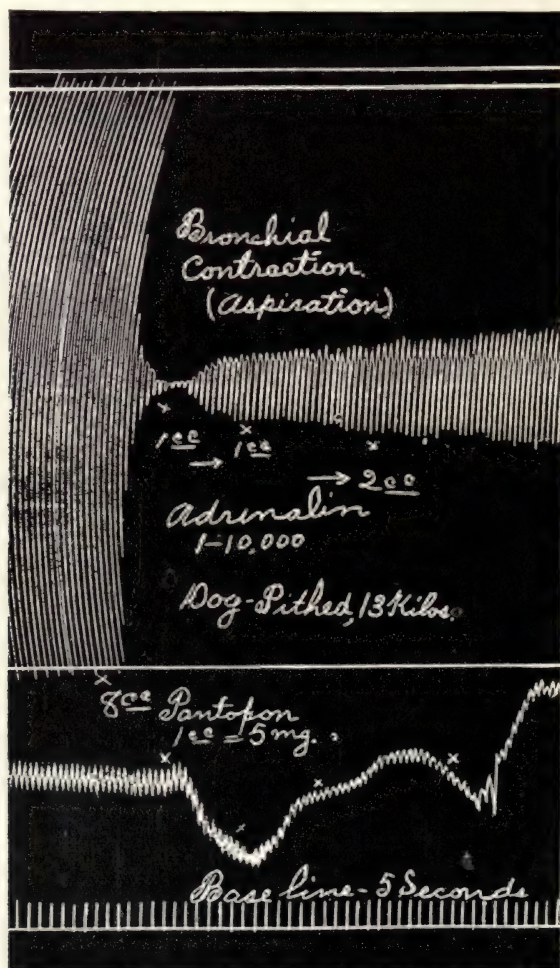 Bronchial
Contraction.
(Aspiration)
1cc → 1cc
→ 2cc
Adrenalin
1-10,000
Dog-Pithed, 13 Kilos.
8cc Pantopon
1cc = 5 mg.
Base line - 5 Seconds